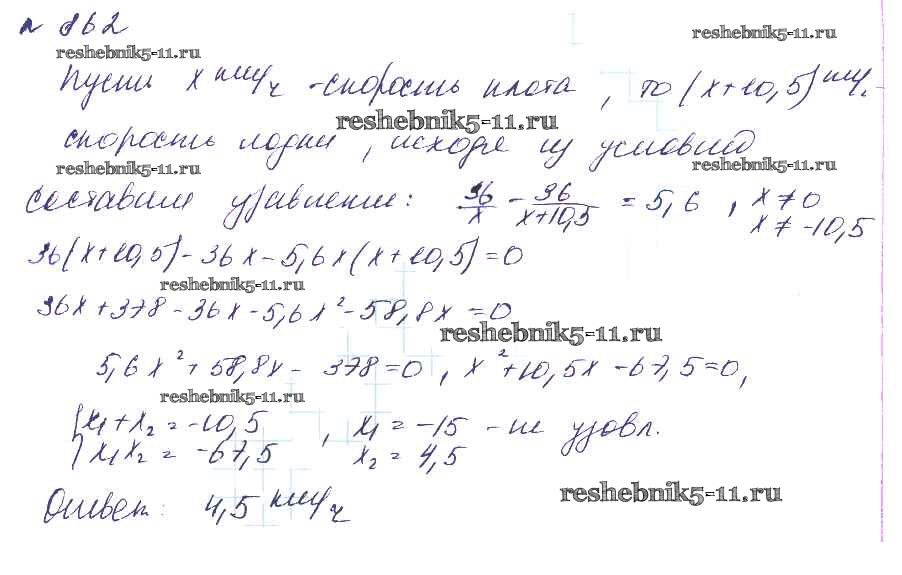 № 862
reshebnik5-11.ru
reshebnik5-11.ru
Пусть x км/ч - скорость плота, то (x+10,5) км/ч -
reshebnik5-11.ru
скорость лодки, исходя из условий
reshebnik5-11.ru
reshebnik5-11.ru
составим уравнение: 36/x - 36/(x+10,5) = 5,6, x ≠ 0
x ≠ -10,5
36(x+10,5) - 36x - 5,6x(x+10,5) = 0
reshebnik5-11.ru
36x + 378 - 36x - 5,6x² - 58,8x = 0
reshebnik5-11.ru
5,6x² + 58,8x - 378 = 0, x² + 10,5x - 67,5 = 0,
reshebnik5-11.ru
{ x₁ + x₂ = -10,5, x₁ = -15 - не удовл.
x₁x₂ = -67,5 x₂ = 4,5
Ответ: 4,5 км/ч
reshebnik5-11.ru